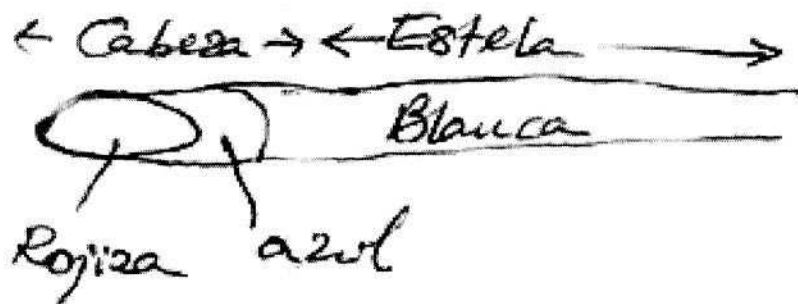 Cabeza Estela
Blanca
Rojiza azul